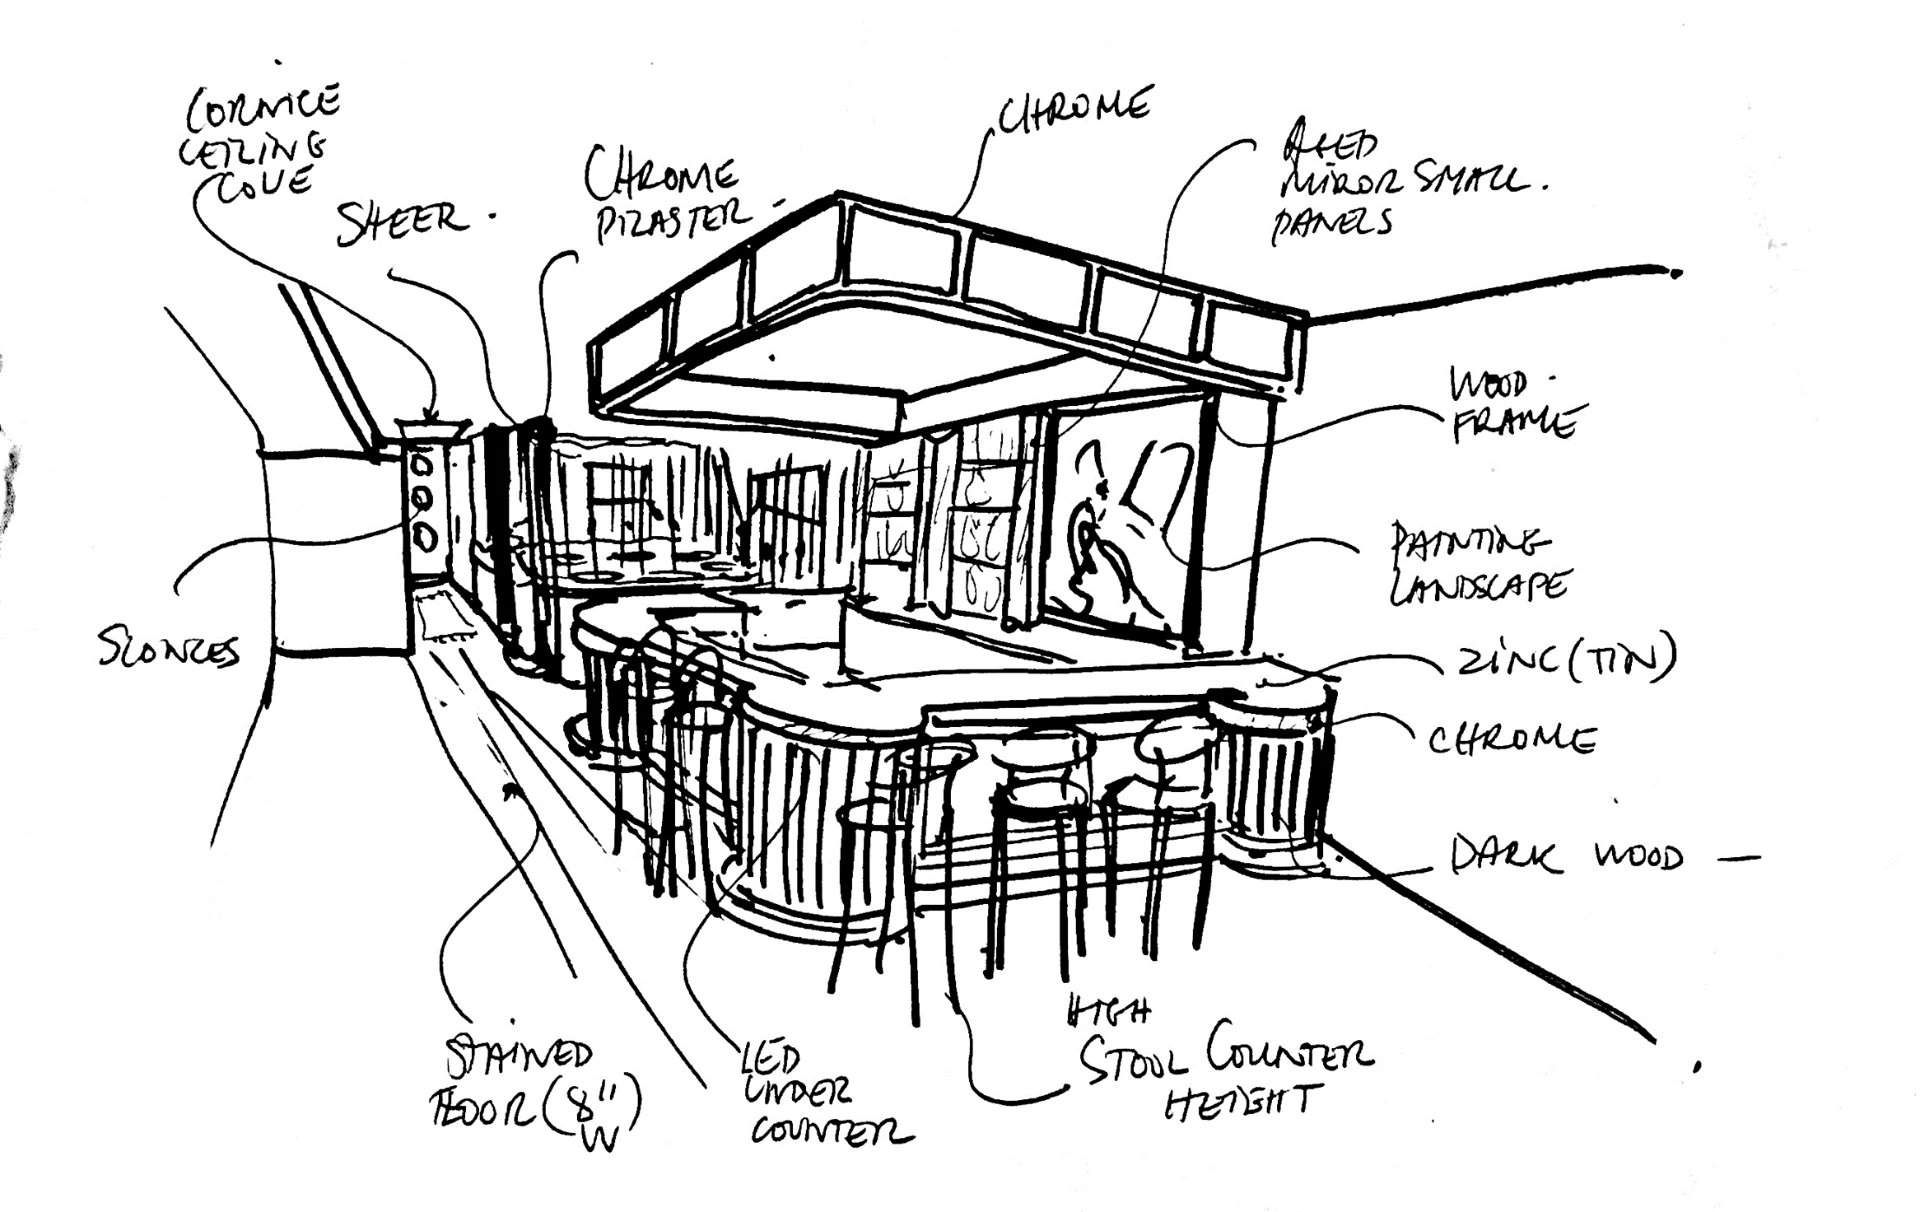 CORNICE
CEILING
COVE
SHEER.
CHROME
PILASTER -
CHROME
AGED
MIROR SMALL.
PANELS
WOOD -
FRAME
PAINTING
LANDSCAPE
ZINC (TIN)
CHROME
DARK WOOD —
SCONCES
STAINED
FLOOR (8"
W)
LED
UNDER
COUNTER
HIGH
STOOL COUNTER
HEIGHT